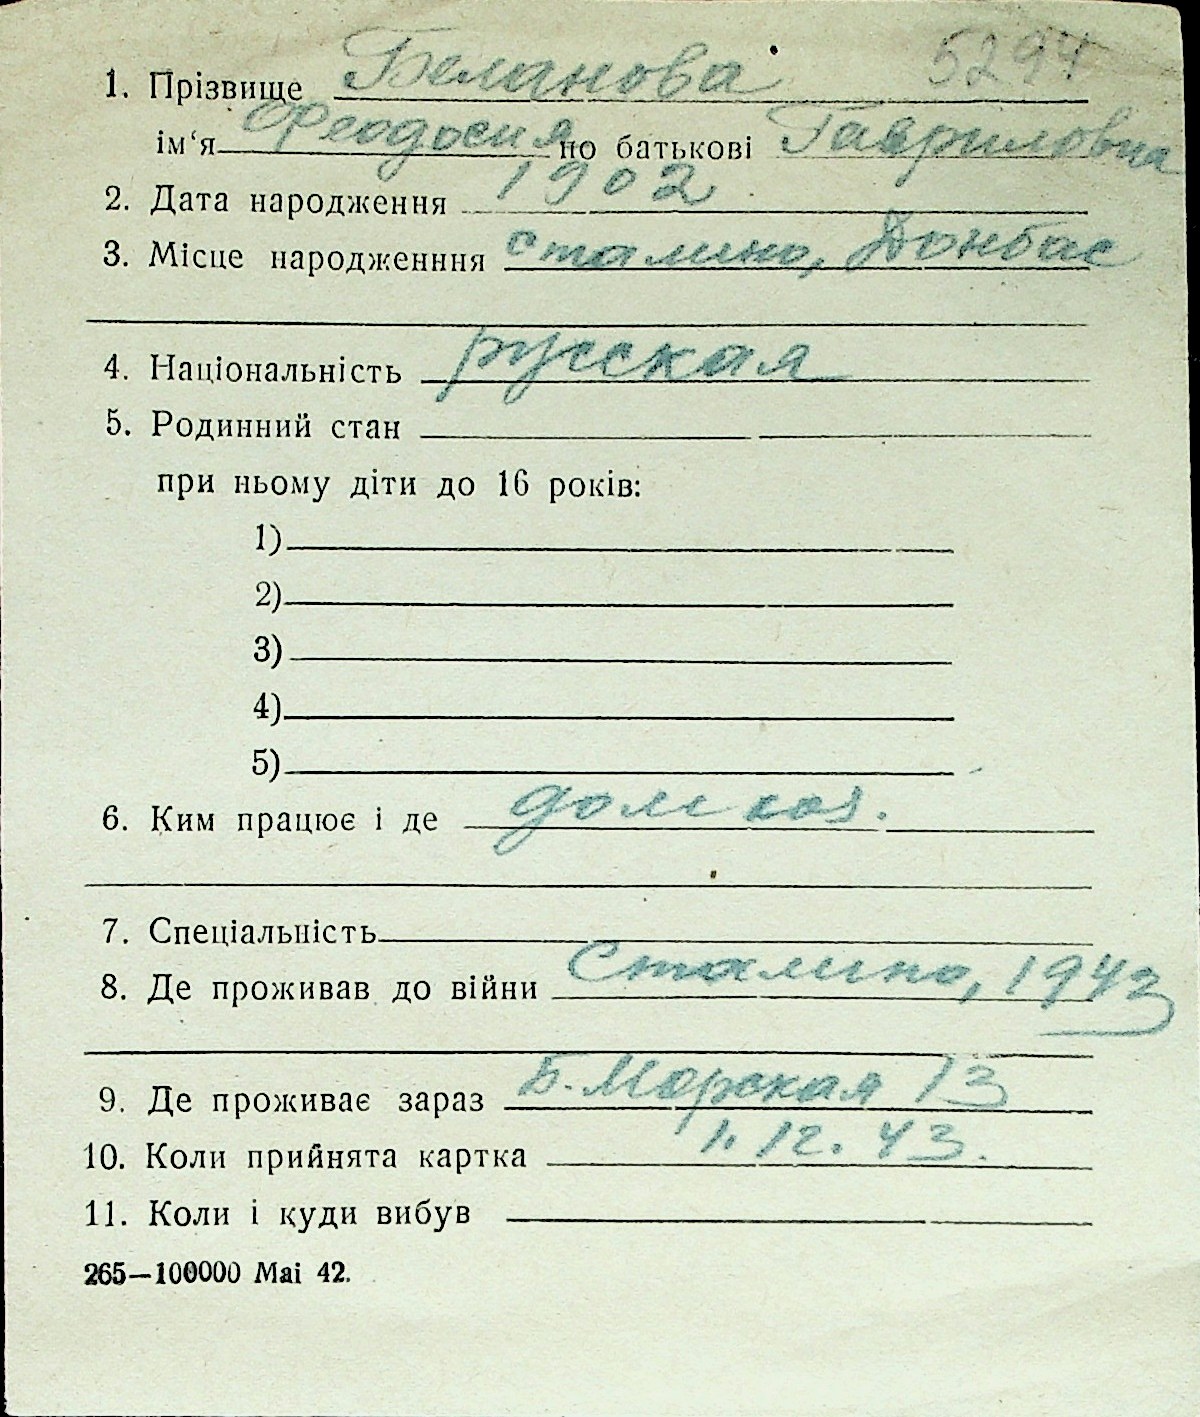 5294
1. Прізвище Беланова
ім‘я Феодосия по батькові Гавриловна
2. Дата народження 1902
3. Місце народженння Сталино, Донбас
4. Національність русская
5. Родинний стан
при ньому діти до 16 років:
1)
2)
3)
4)
5)
6. Ким працює і де дом хоз.
7. Спеціальність
8. Де проживав до війни Сталино, 1943
9. Де проживає зараз Б. Морская 13
10. Коли прийнята картка 1.12.43.
11. Коли і куди вибув
265—100000 Маі 42.